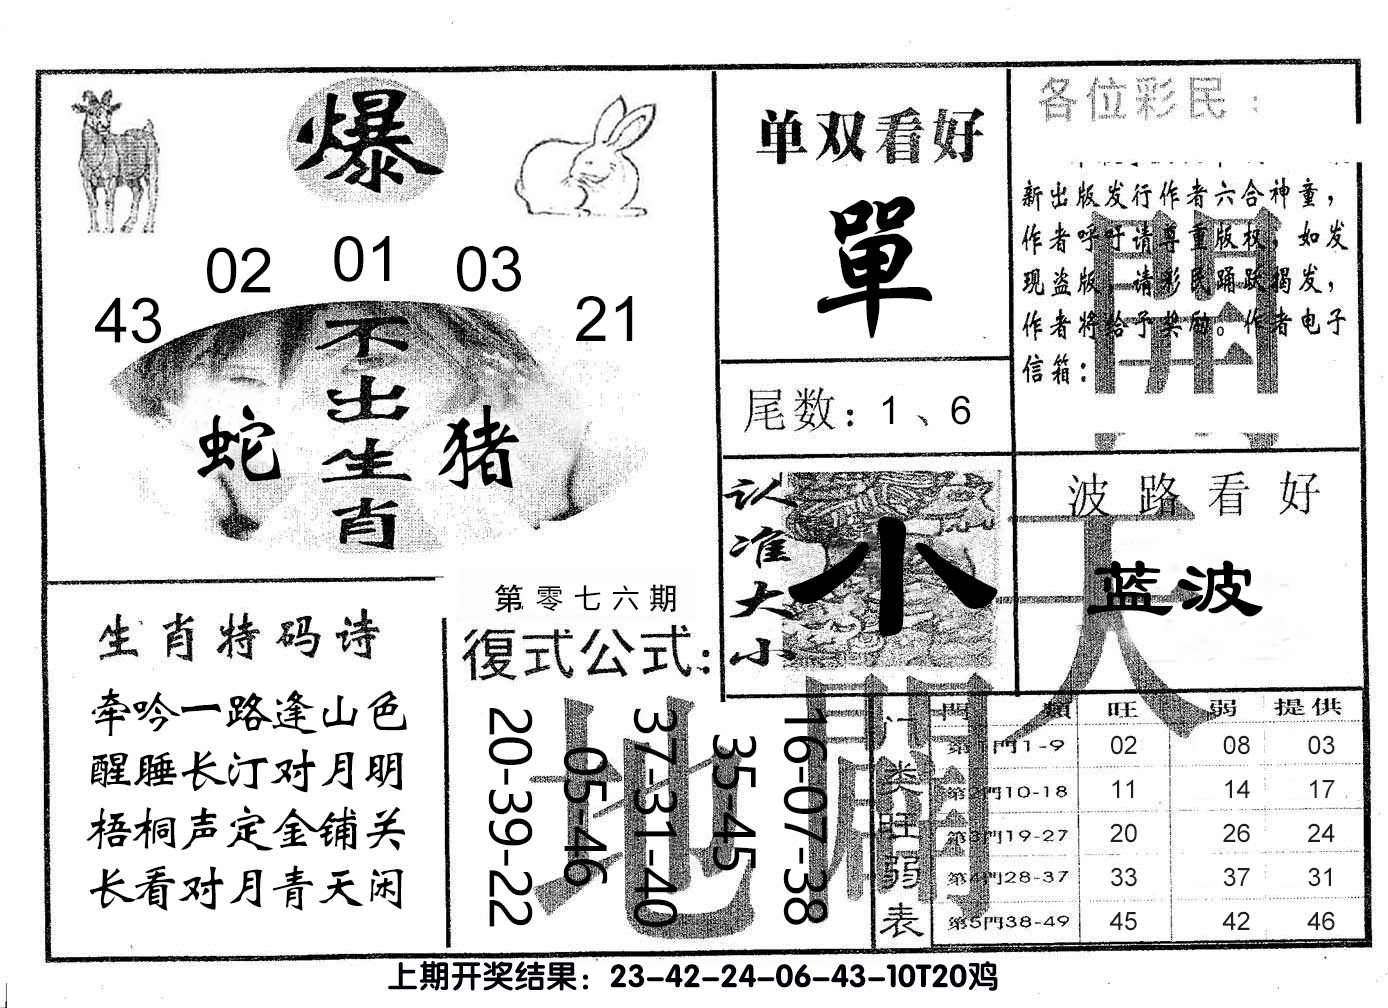 爆
01
02
03
43
21
不出生肖
蛇
猪
单双看好
單
尾数：1、6
认准大小
小
各位彩民：
新出版发行作者六合神童，
作者呼吁请尊重版权，如发
现盗版，请彩民踊跃揭发，
作者将给予奖励。作者电子
信箱：
波路看好
蓝波
生肖特码诗
牵吟一路逢山色
醒睡长汀对月明
梧桐声定金铺关
长看对月青天闲
第零七六期
復式公式：
20-39-22
05-46
37-31-40
35-45
16-07-38
天
地
開
門类旺弱表
門 類 旺 弱 提供
第1門1-9 02 08 03
第2門10-18 11 14 17
第3門19-27 20 26 24
第4門28-37 33 37 31
第5門38-49 45 42 46
上期开奖结果：23-42-24-06-43-10T20鸡